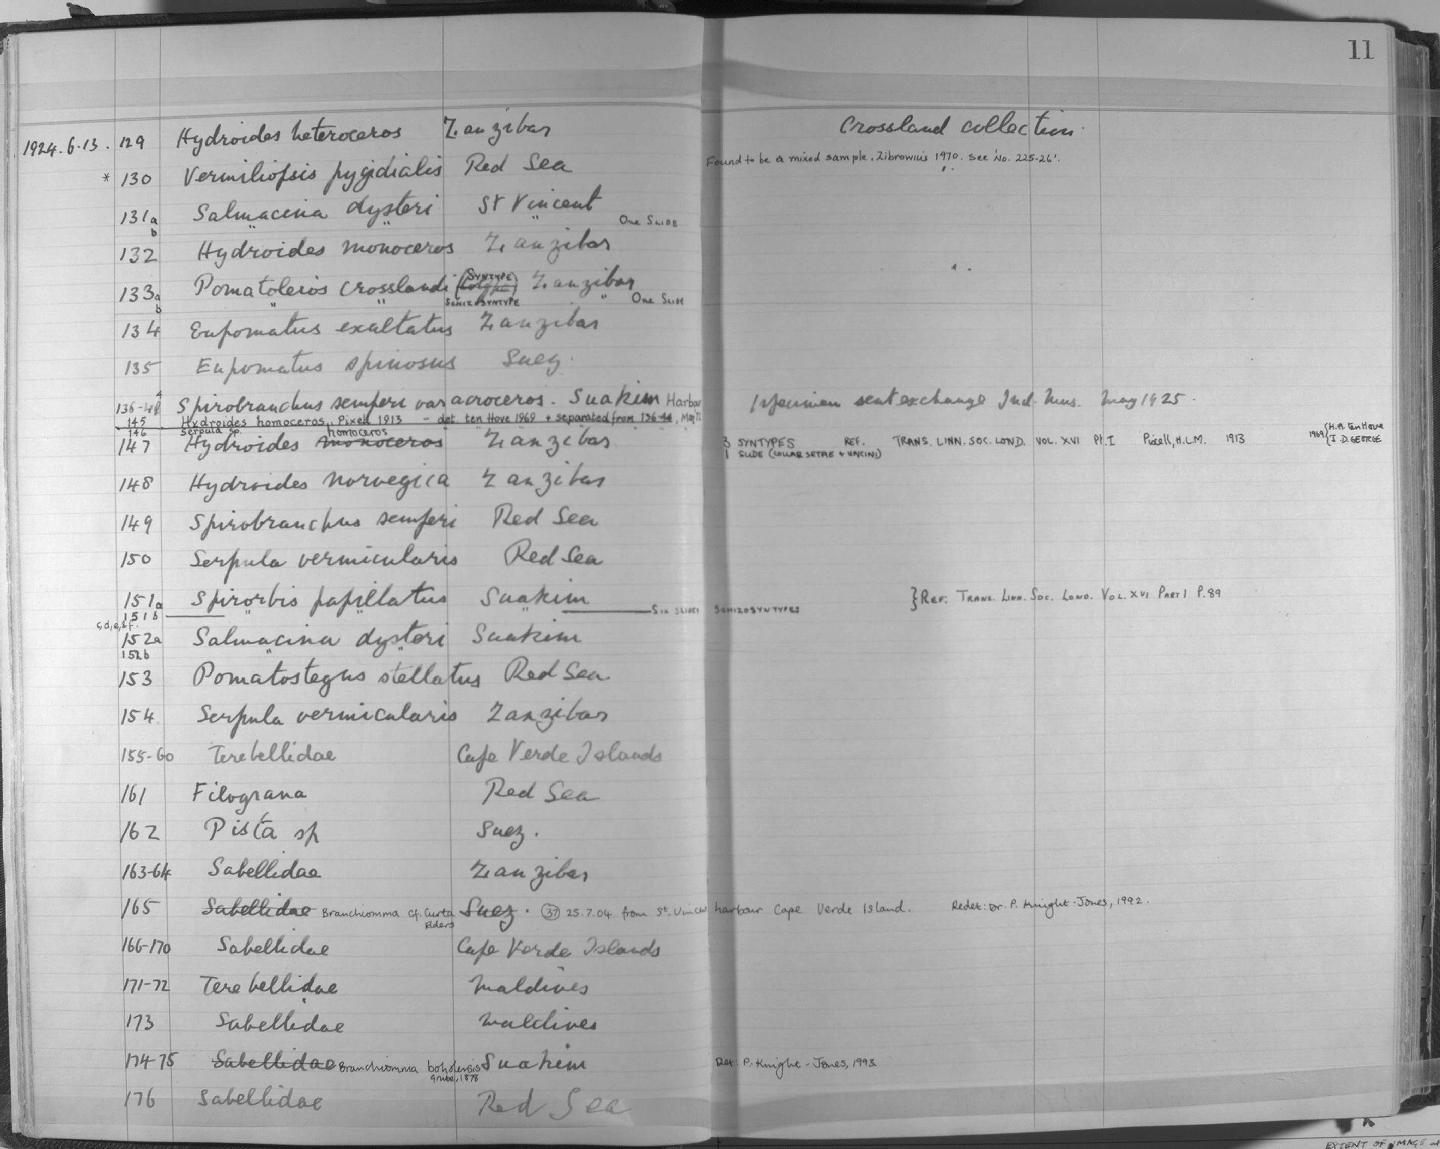 11
1924.6.13. 129 Hydroides heteroceros Zanzibar Crossland collection
* 130 Vermiliopsis pygidialis Red Sea Found to be a mixed sample. Zibrowius 1970. See 'No. 225-26'.
131a Salmacina dysteri St Vincent
b " " " One Slide
132 Hydroides monoceros Zanzibar
133a Pomatoleios crosslandi (Syntype) Zanzibar
b " " Schizosyntype " One Slide
134 Eupomatus exaltatus Zanzibar
135 Eupomatus spinosus Suez.
136-44 Spirobranchus semperi var acroceros. Suakim Harbour 1 specimen sent exchange Ind. Mus. May 1925.
145 Hydroides homoceros, Pixell 1913 - det ten Hove 1969 + separated from 136-44, May
146 Serpula sp.
147 Hydroides monoceros homoceros Zanzibar 3 SYNTYPES REF. TRANS. LINN. SOC. LOND. VOL. XVI Pt. I Pixell, H.L.M. 1913 1969 {H.A. Ten Hove
1 SLIDE (COLLAR SETAE + UNCINI) {J. D. GEORGE
148 Hydroides norvegica Zanzibar
149 Spirobranchus semperi Red Sea
150 Serpula vermicularis Red Sea
151a Spirorbis papillatus Suakim }Ref: Trans. Linn. Soc. Lond. Vol. XVI Part I P.89
151b " " " Six slides Schizosyntypes
c,d,e,&f.
152a Salmacina dysteri Suakim
152b " "
153 Pomatostegus stellatus Red Sea
154 Serpula vermicularis Zanzibar
155-60 Terebellidae Cape Verde Islands
161 Filograna Red Sea
162 Pista sp Suez.
163-64 Sabellidae Zanzibar
165 Sabellidae Branchiomma cf. curta Suez. (37) 25.7.04 from St. Vincent harbour Cape Verde Island. Redet: Dr. P. Knight-Jones, 1992.
Ehlers
166-170 Sabellidae Cape Verde Islands
171-72 Terebellidae Maldives
173 Sabellidae Maldives
174-75 Sabellidae Branchiomma boholensis Suakim Det: P. Knight-Jones, 1993
Grube, 1878
176 Sabellidae Red Sea
EXTENT OF IMAGE